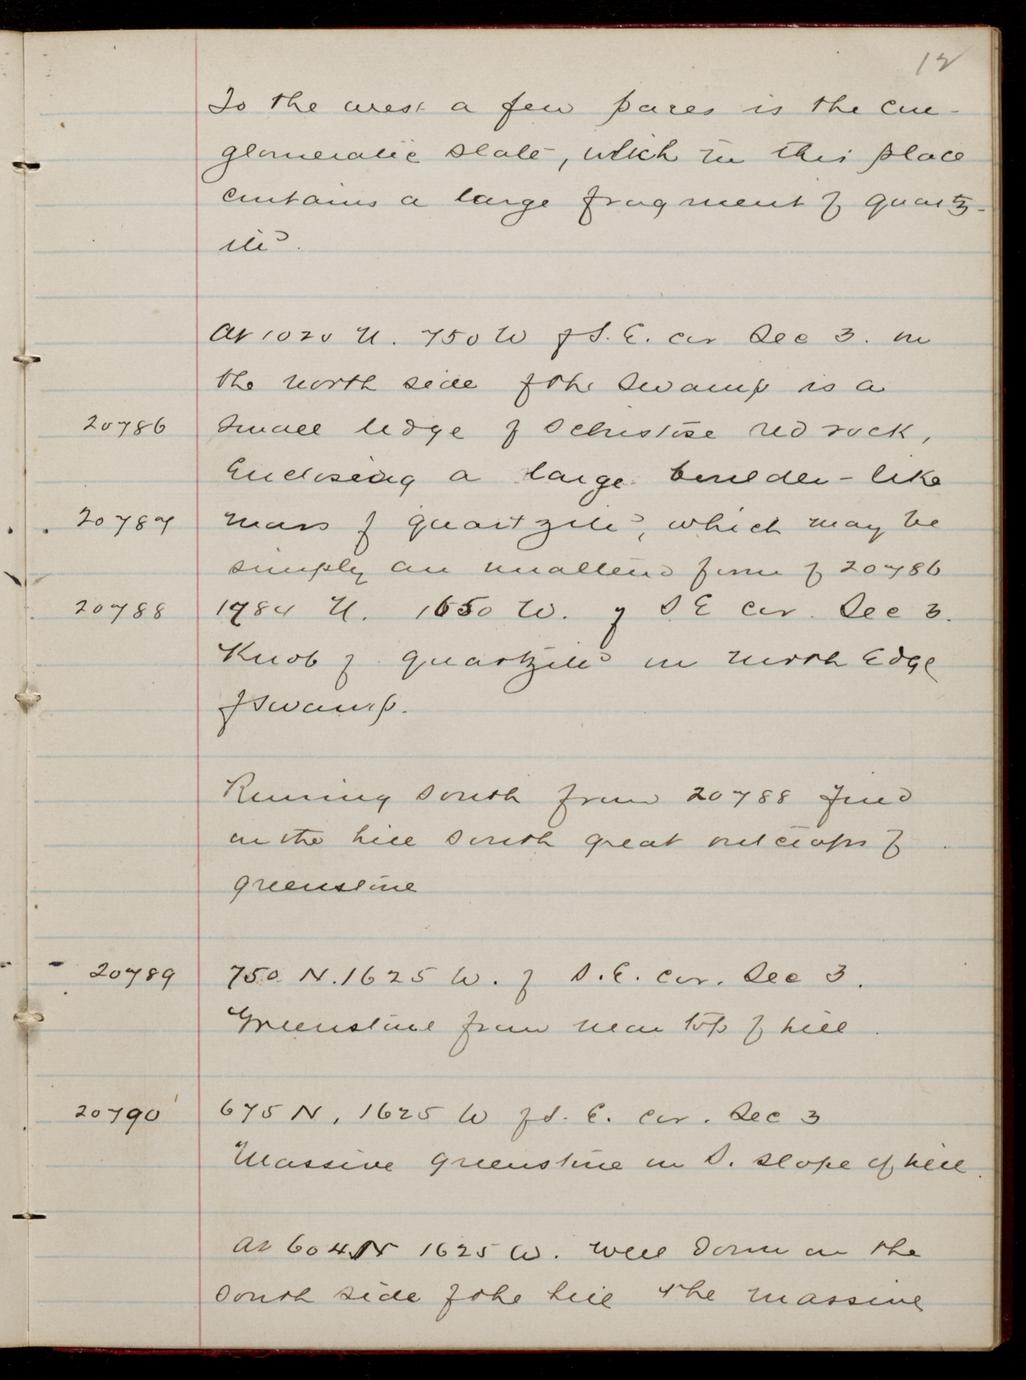 12
To the west a few paces is the con-
glomeratic slate, which in this place
contains a large fragment of quartz-
ite.
At 1020 N. 750 W of S. E. cor Sec 3. on
the north side of the swamp is a
20786 small ledge of schistose red rock,
Enclosing a large boulder-like
20787 mass of quartzite, which may be
simply an unaltered form of 20786
20788 1984 N. 1650 W. of S E cor. Sec 3.
Knob of quartzite on north Edge
of swamp.
Running south from 20788 find
on the hill south great outcrops of
greenstone
20789 750 N. 1625 W. of S. E. cor. Sec 3.
Greenstone from near top of hill.
20790 675 N, 1625 W of S. E. cor. Sec 3
Massive greenstone on S. slope of hill.
At 604 N 1625 W. well down on the
south side of the hill the massive